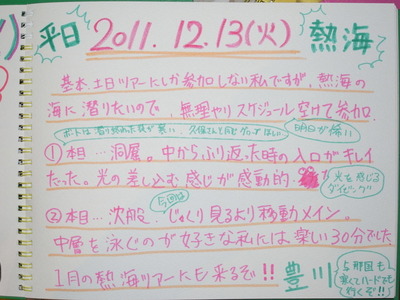 平日
2011.12.13(火)
熱海
基本、土日ツアーにしか参加しない私ですが、熱海の
海に潜りたいので、無理やりスケジュール空けて参加.
明日が怖い
①1本目…洞窟。中からふり返った時の入口がキレイ
だった。光の差し込む感じが感動的
光を感じる
ダイビング
今回は
②本目…沈船。じっくり見るより移動メイン。
中層を泳ぐのが好きな私には楽しい30分でした。
1月の熱海ツアーにも来るぞ!!
豊川
与那国も
寒くてハードでも
行くぞ!!